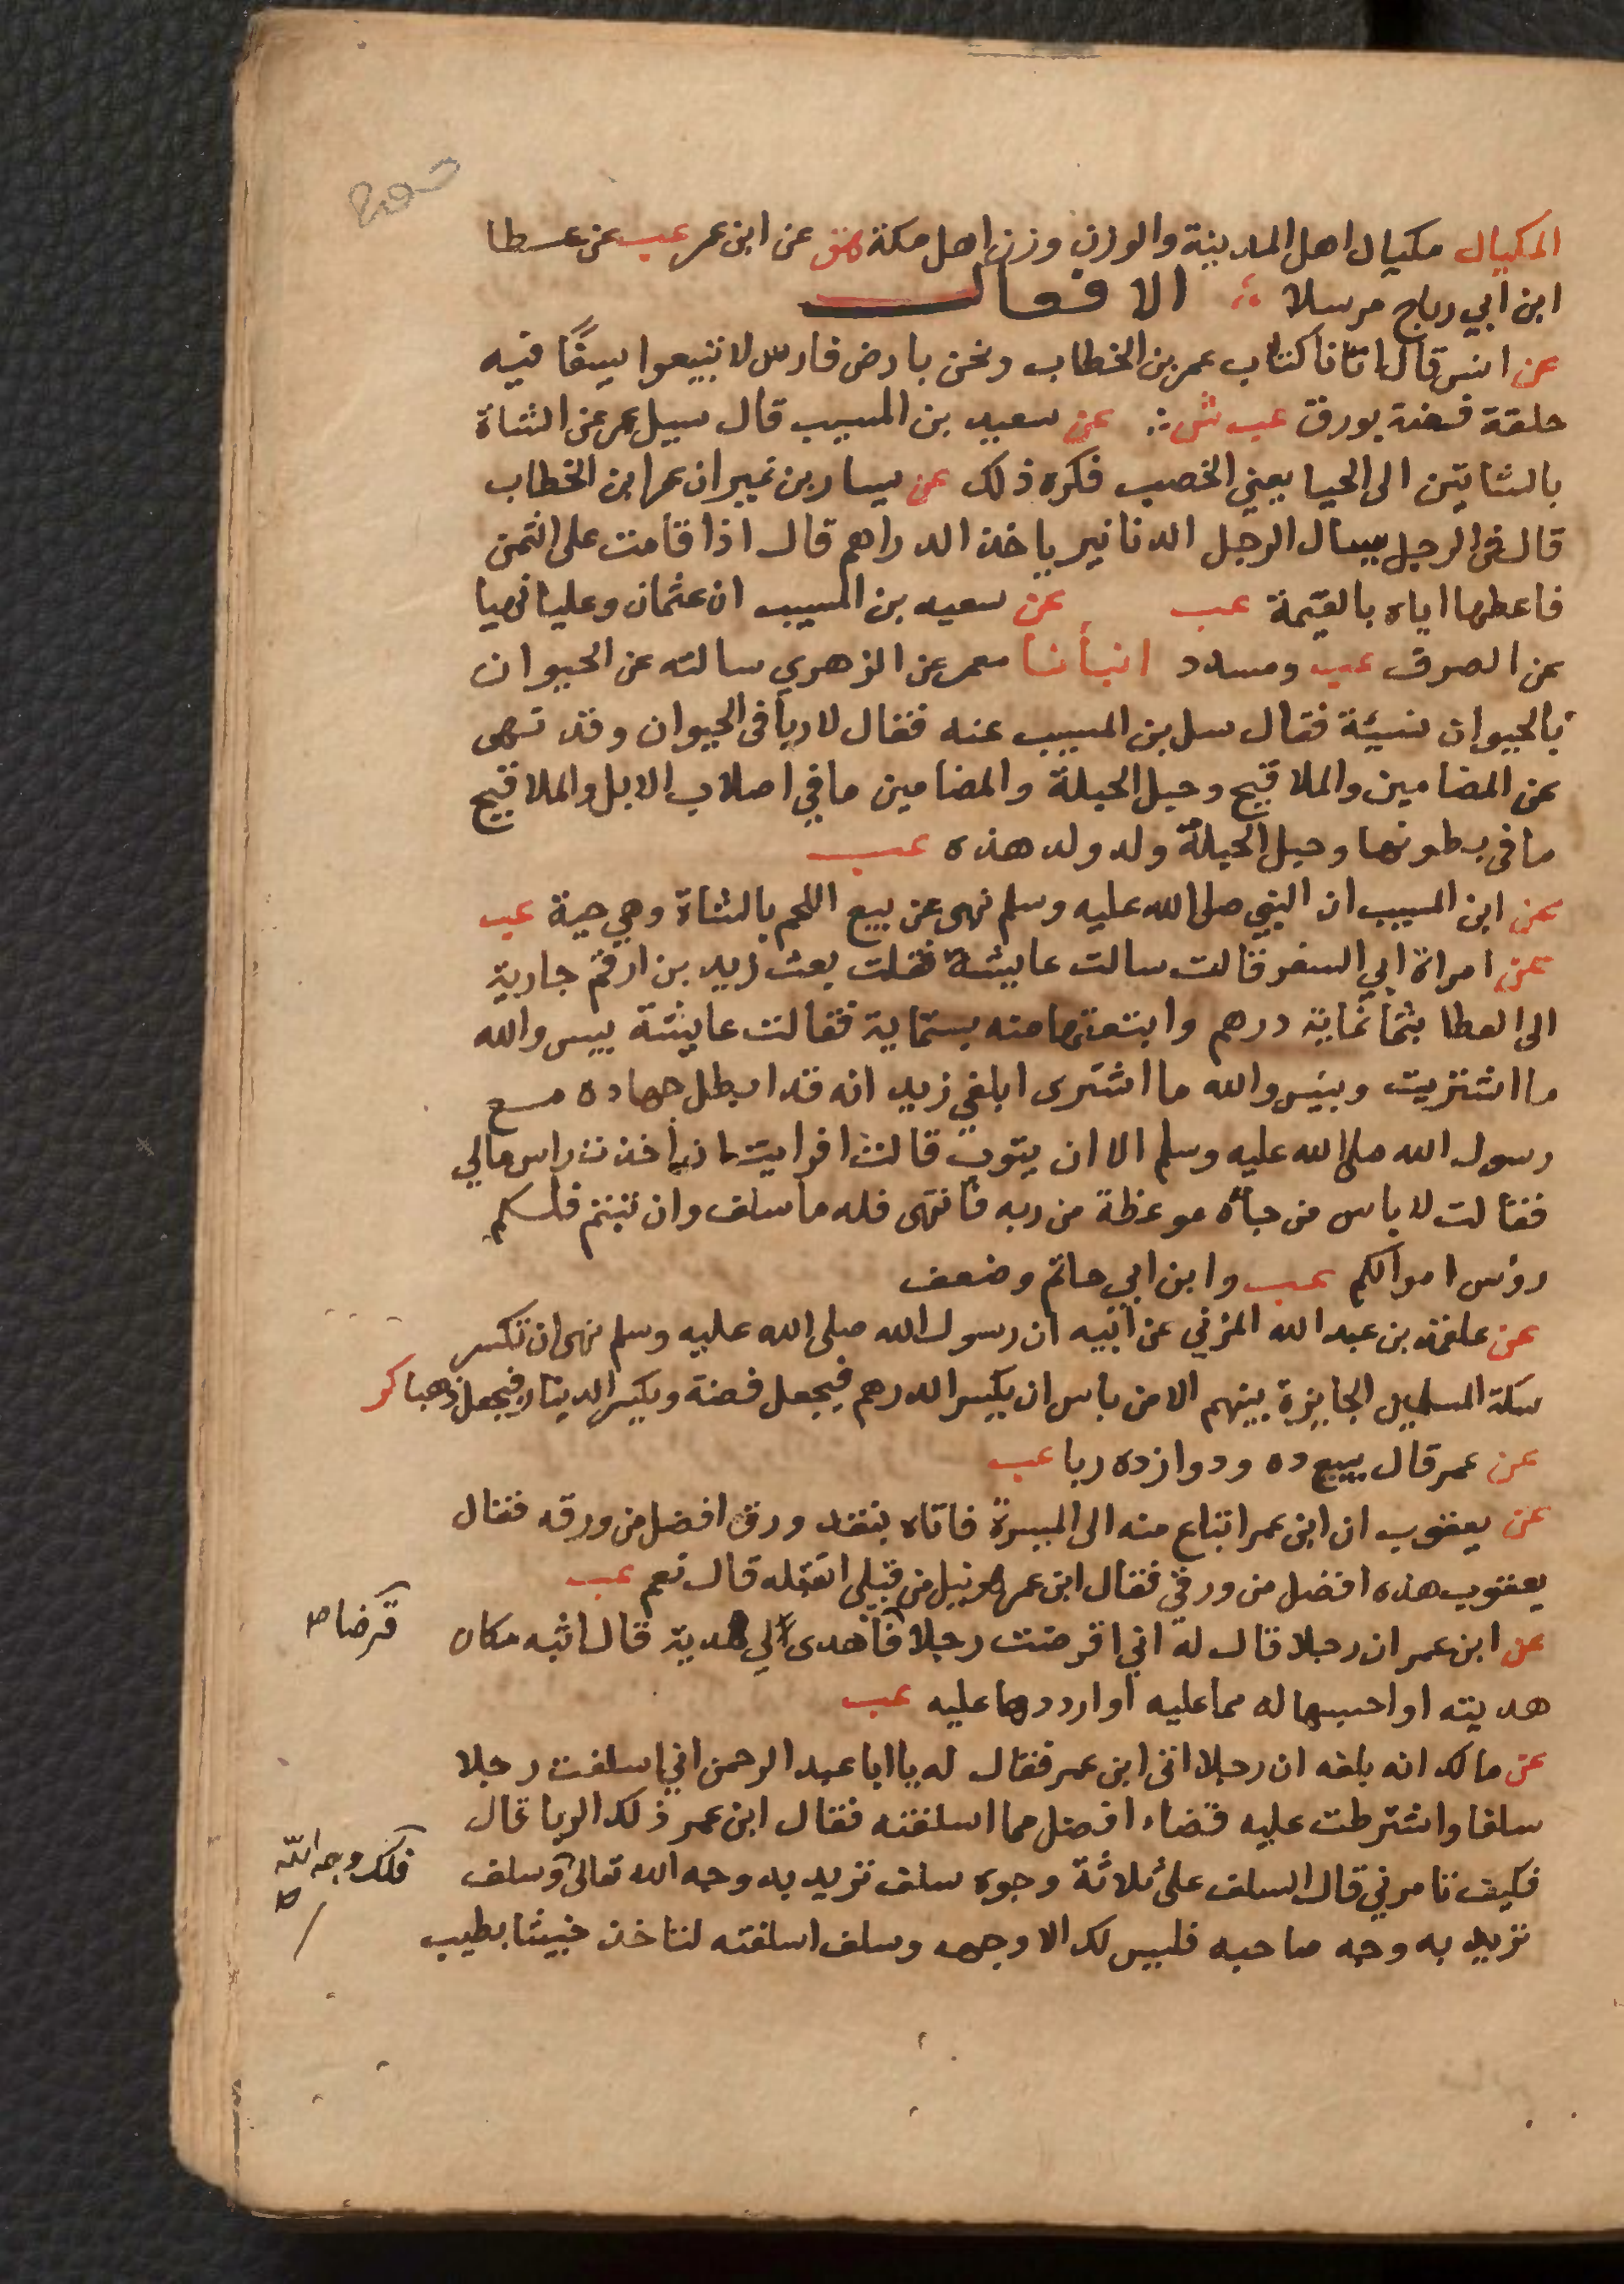 المكيال مكيال اهل المدينة والوزن وزن اهل مكة هق عن ابن عمر عب عن عطا
ابن ابي رباح مرسلا الافعال
عن انس قال اتانا كتاب عمر بن الخطاب ونحن بارض فارس لا تبيعوا سيفًا فيه
حلقة فضة بورق عب ش عن سعيد بن المسيب قال سيل عمر عن الشاة
بالشاتين الى الحيا يعني الخصب فكره ذلك عن يسار بن نمير ان عمر ابن الخطاب
قال في الرجل يسال الرجل الدنانير ياخذ الدراهم قال اذا قامت على الثمن
فاعطها اياه بالقيمة عب عن سعيد بن المسيب ان عثمان وعليا نهيا
عن الصرف عب ومسدد انبأنا معمر عن الزهري سالته عن الحيوان
بالحيوان نسيئة فقال سل بن المسيب عنه فقال لا ربا في الحيوان وقد نهى
عن المضامين والملاقيح وحبل الحبلة والمضامين ما في اصلاب الابل والملاقيح
ما في بطونها وحبل الحبلة ولد ولد هذه عب
عن ابن المسيب ان النبي صلى الله عليه وسلم نهى عن بيع اللحم بالشاة وهي حية عب
عن امراة ابي السفر قالت سالت عايشة فقلت بعت زيد بن ارقم جارية
الى العطا بثمانماية درهم وابتعتها منه بستماية فقالت عايشة بيس والله
ما اشتريت وبئس والله ما اشترى ابلغي زيد انه قد ابطل جهاده مع
رسول الله صلى الله عليه وسلم الا ان يتوب قالت افرايت ان اخذت راس مالي
فقالت لا باس من جاءه موعظة من ربه فانتهى فله ما سلف وان تبتم فلكم
رؤس اموالكم عب وابن ابي حاتم وضعف
عن علقمة بن عبد الله المزني عن ابيه ان رسول الله صلى الله عليه وسلم نهى ان تكسر
سكة المسلمين الجايزة بينهم الا من باس ان يكسر الدرهم فيجعل فضة ويكسر الدينار فيجعل ذهبا كر
عن عمر قال بيع ده ودوازده ربا عب
عن يعقوب ان ابن عمر ابتاع منه الى الميسرة فاتاه بنقد ورق افضل من ورقه فقال
يعقوب هذه افضل من ورقي فقال ابن عمر هو نيل من قبلي اتقبله قال نعم عب
عن ابن عمر ان رجلا قال له اني اقرضت رجلا فاهدى لي هدية قال اثبه مكان
قرضا ص
هديته او احسبها له مما عليه او ارددها عليه عب
عن مالك انه بلغه ان رجلا اتى ابن عمر فقال له يا ابا عبد الرحمن اني اسلفت رجلا
سلفا واشترطت عليه قضاء افضل مما اسلفته فقال ابن عمر ذلك الربا قال
فكيف تامرني قال السلف على ثلاثة وجوه سلف تريد به وجه الله تعالى وسلف
فلك وجه الله ص
تريد به وجه صاحبه فليس لك الا وجهه وسلف اسلفته لتاخذ خبيثا بطيب